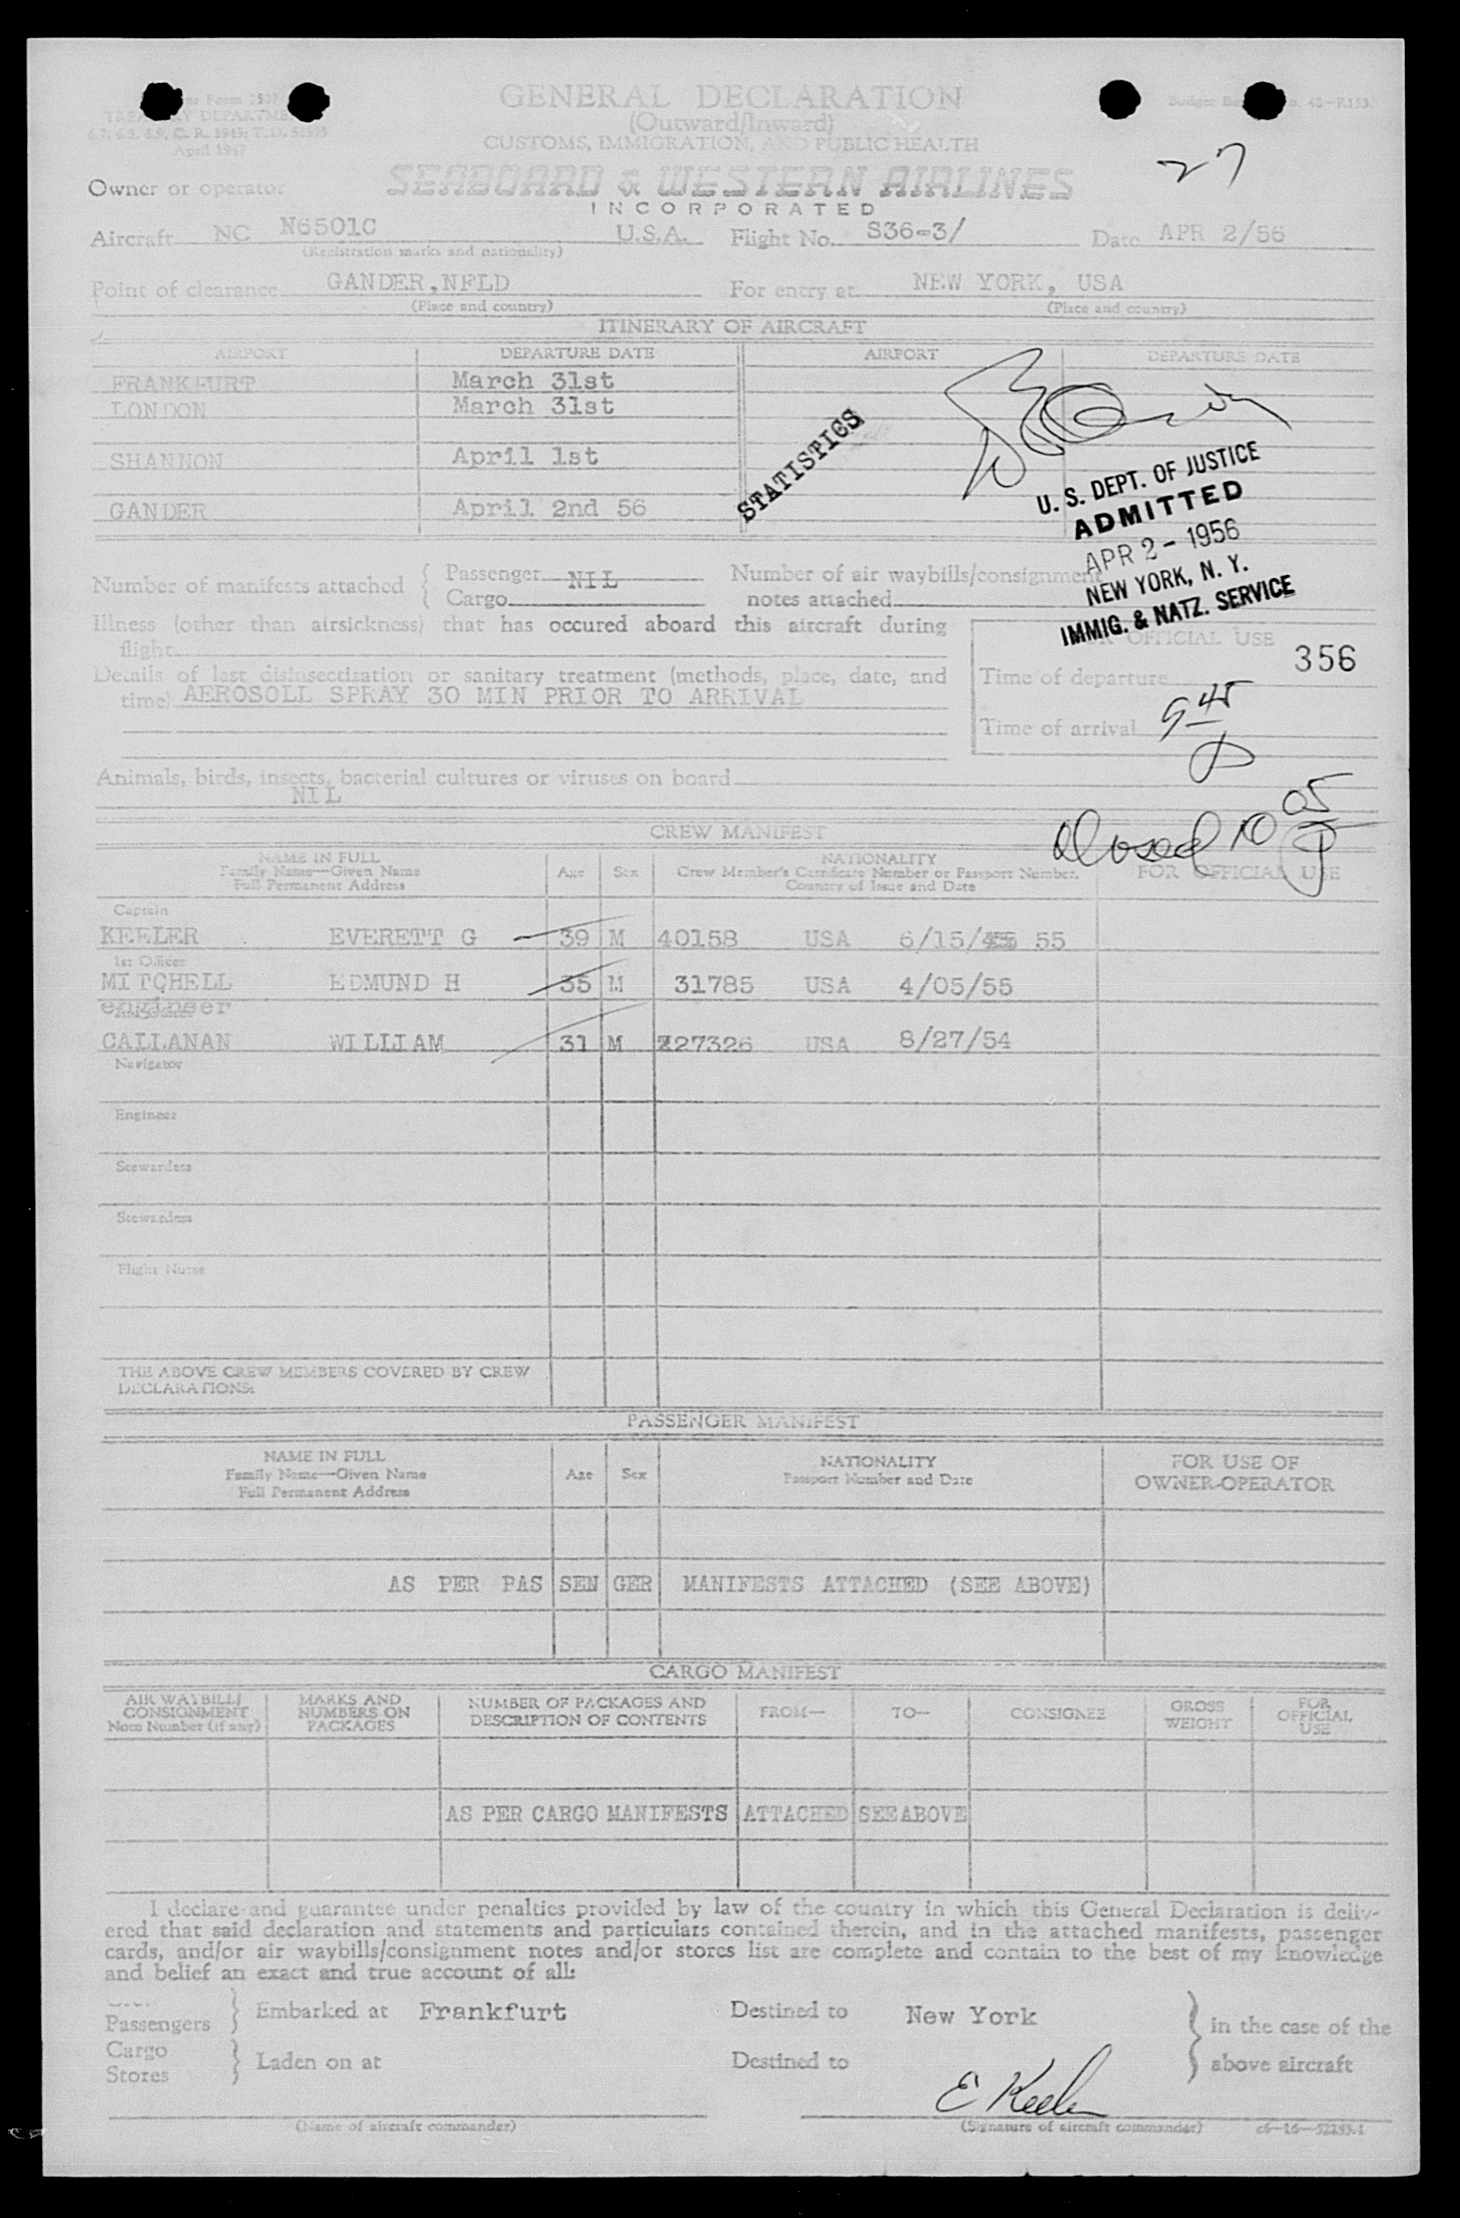 GENERAL DECLARATION
(Outward/Inward)
CUSTOMS, IMMIGRATION, AND PUBLIC HEALTH
April 1947
27
Owner or operator SEABOARD & WESTERN AIRLINES
INCORPORATED
Aircraft NC N6501C U.S.A. Flight No. S36-3/ Date APR 2/56
(Registration marks and nationality)
Point of clearance GANDER,NFLD For entry at NEW YORK, USA
(Place and country) (Place and country)
ITINERARY OF AIRCRAFT
AIRPORT DEPARTURE DATE AIRPORT DEPARTURE DATE
FRANKFURT March 31st
LONDON March 31st
SHANNON April 1st
GANDER April 2nd 56
STATISTICS
U. S. DEPT. OF JUSTICE
ADMITTED
APR 2 - 1956
NEW YORK, N. Y.
IMMIG. & NATZ. SERVICE
Number of manifests attached { Passenger NIL Number of air waybills/consignment
Cargo notes attached
Illness (other than airsickness) that has occured aboard this aircraft during
flight
OFFICIAL USE
356
Details of last disinsectization or sanitary treatment (methods, place, date, and
time) AEROSOLL SPRAY 30 MIN PRIOR TO ARRIVAL
Time of departure
Time of arrival 9 45
Animals, birds, insects, bacterial cultures or viruses on board
NIL
Closed 10 05
CREW MANIFEST
NAME IN FULL
Family Name—Given Name
Full Permanent Address
Age Sex
NATIONALITY
Crew Member's Certificate Number or Passport Number,
Country of Issue and Date
FOR OFFICIAL USE
Captain
KEELER EVERETT G 39 M 40158 USA 6/15/ 55
1st Officer
MITCHELL EDMUND H 35 M 31785 USA 4/05/55
engineer
CALLANAN WILLIAM 31 M 127326 USA 8/27/54
Navigator
Engineer
Stewardess
Stewardess
Flight Nurse
THE ABOVE CREW MEMBERS COVERED BY CREW
DECLARATIONS:
PASSENGER MANIFEST
NAME IN FULL
Family Name—Given Name
Full Permanent Address
Age Sex
NATIONALITY
Passport Number and Date
FOR USE OF
OWNER-OPERATOR
AS PER PAS SEN GER MANIFESTS ATTACHED (SEE ABOVE)
CARGO MANIFEST
AIR WAYBILL/
CONSIGNMENT
Note Number (if any)
MARKS AND
NUMBERS ON
PACKAGES
NUMBER OF PACKAGES AND
DESCRIPTION OF CONTENTS
FROM— TO— CONSIGNEE
GROSS
WEIGHT
FOR
OFFICIAL
USE
AS PER CARGO MANIFESTS ATTACHED SEE ABOVE
I declare and guarantee under penalties provided by law of the country in which this General Declaration is deliv-
ered that said declaration and statements and particulars contained therein, and in the attached manifests, passenger
cards, and/or air waybills/consignment notes and/or stores list are complete and contain to the best of my knowledge
and belief an exact and true account of all:
Passengers } Embarked at Frankfurt Destined to New York } in the case of the
Cargo
Stores } Laden on at Destined to above aircraft
E Keeler
(Name of aircraft commander) (Signature of aircraft commander)